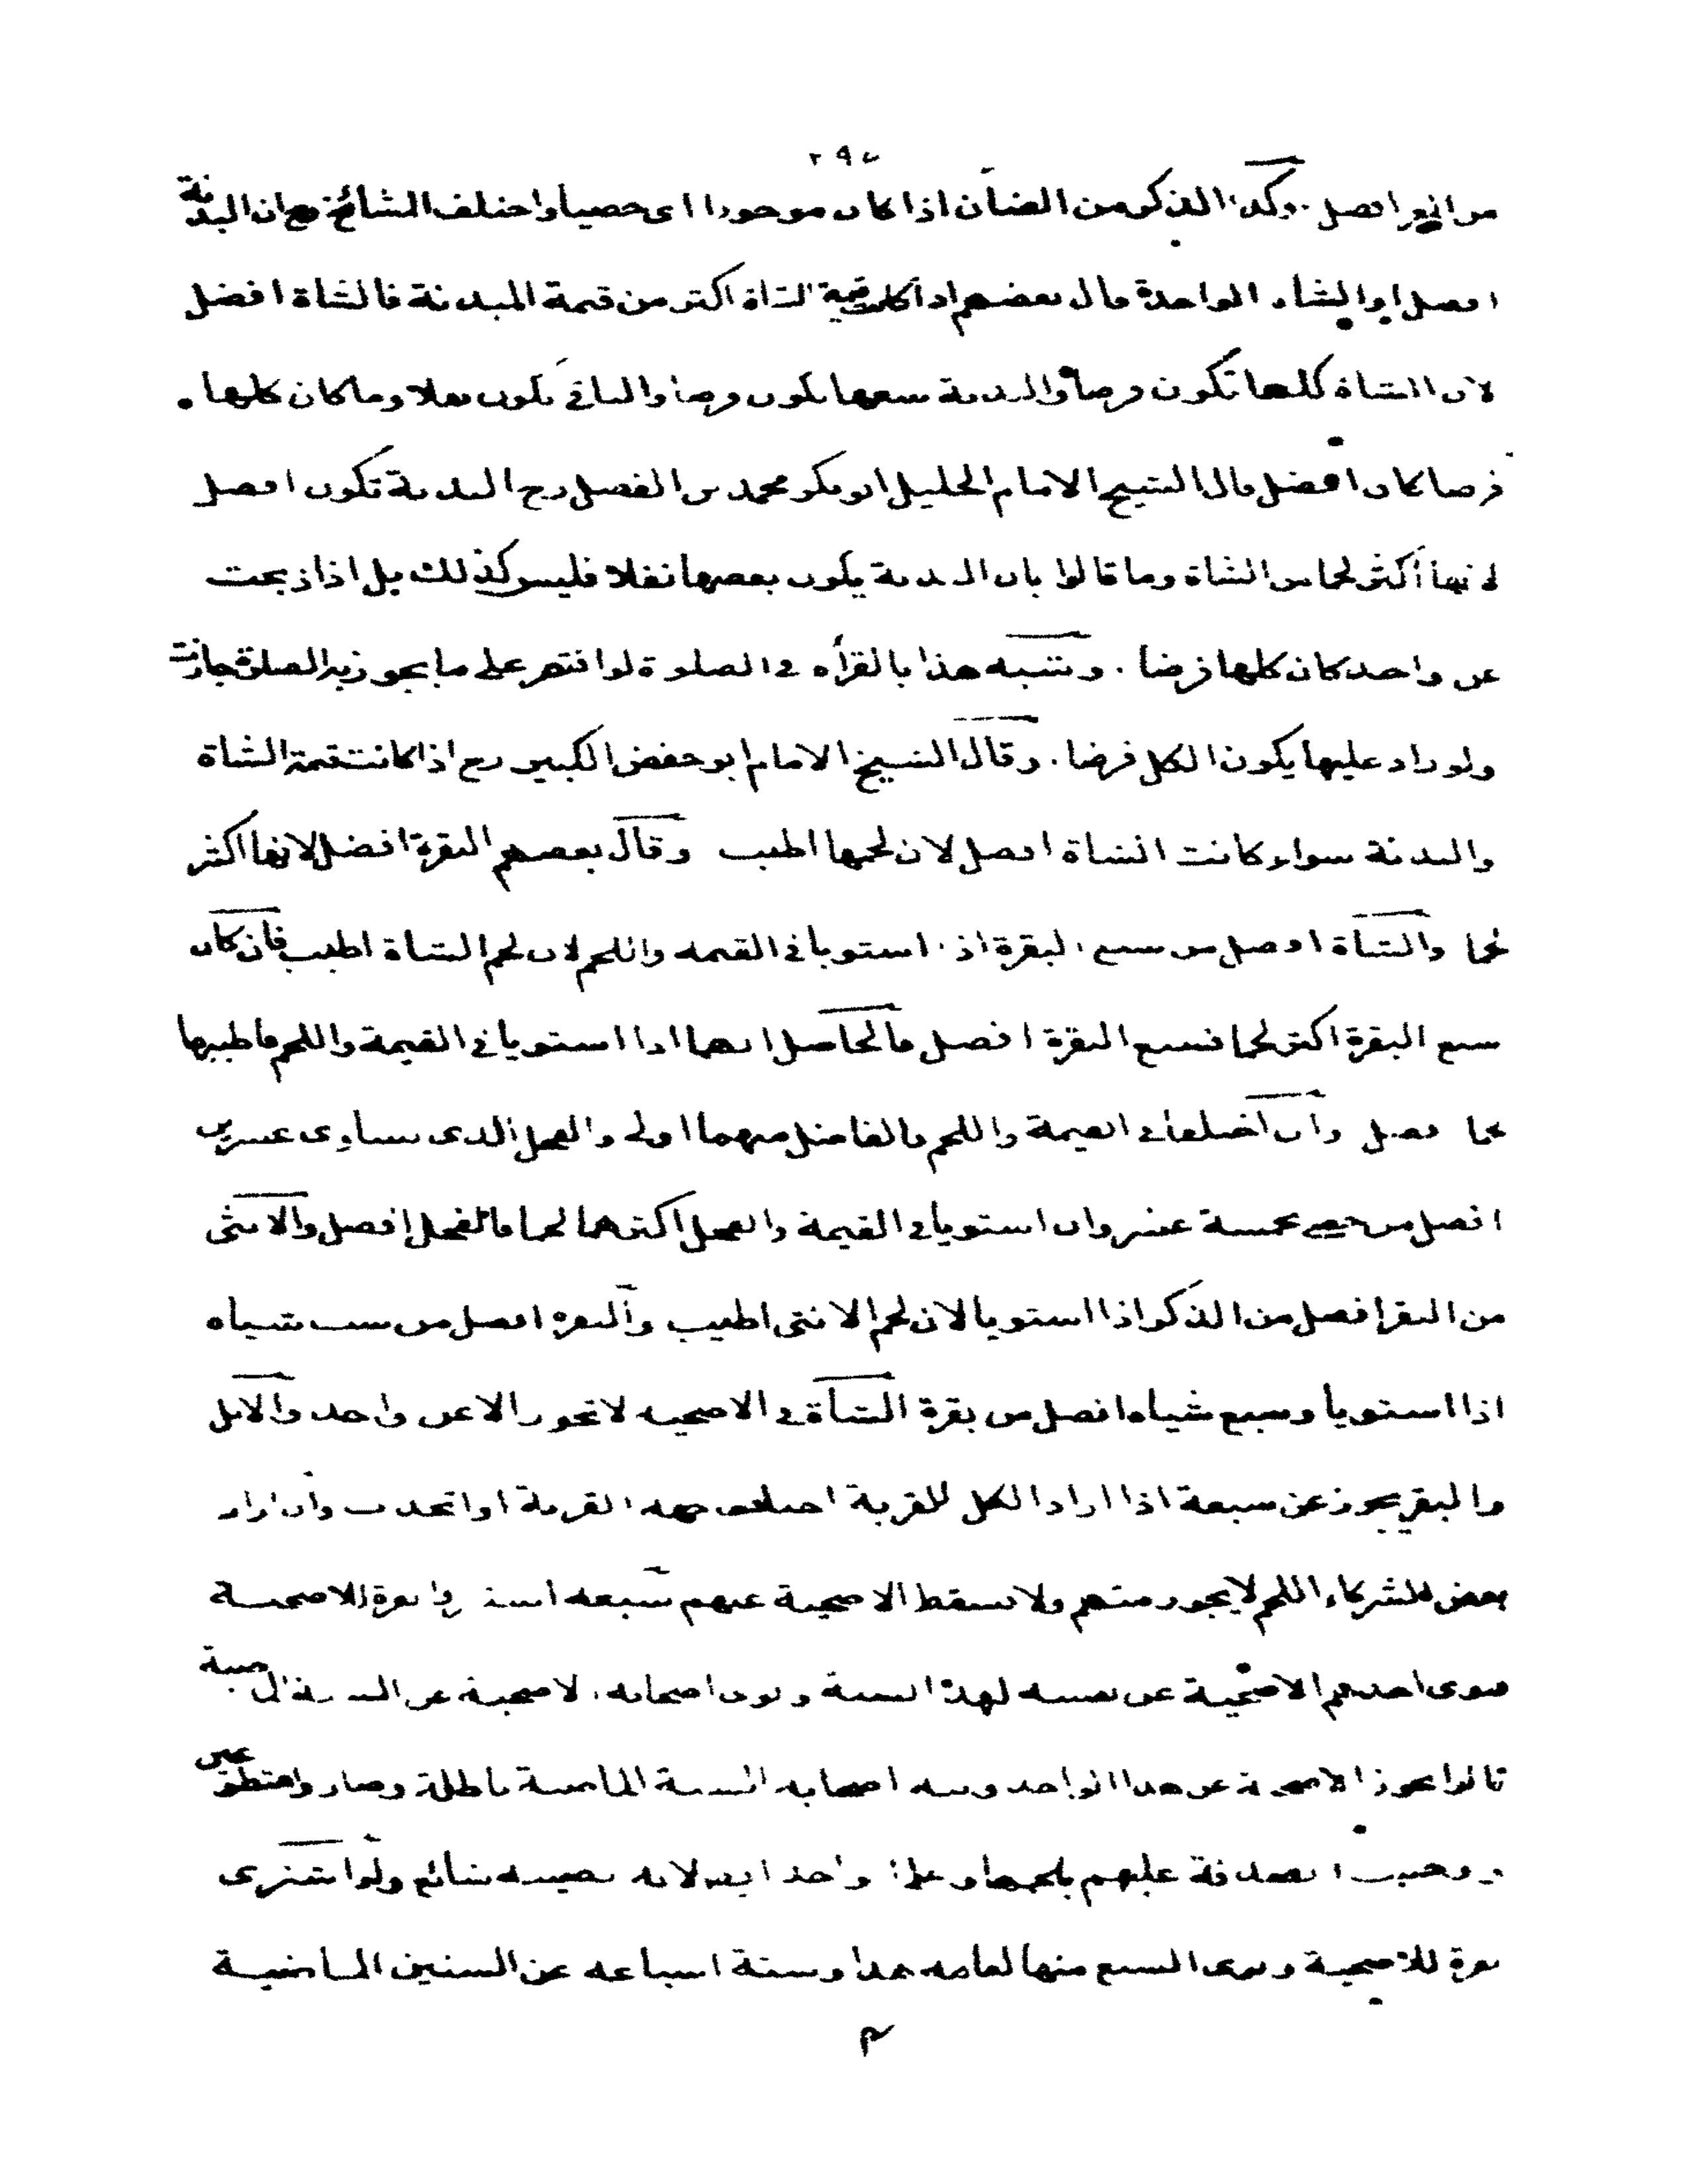 ٢٩٤
من المعز افضل . وكذا الذكر من الضأن اذا كان موجودا اى خصيا واختلف المشائخ رح ان البدنة
افضل او الشاة الواحدة قال بعضهم اذا كانت قيمة الشاة اكثر من قيمة البدنة فالشاة افضل
لان الشاة كلها تكون فرضا والبدنة سبعها يكون فرضا والباقى يكون نفلا وما كان كلها
فرضا كان افضل قال الشيخ الامام الجليل ابو بكر محمد بن الفضل رح البدنة تكون افضل
لانها أكثر لحما من الشاة وما قالوا بان البدنة يكون بعضها نفلا فليس كذلك بل اذا ذبحت
عن واحد كان كلها فرضا . وشبه هذا بالقرأة فى الصلوة لو اقتصر على ما يجوز به الصلوة جازت
ولو زاد عليها يكون الكل فرضا . وقال الشيخ الامام ابو حفص الكبير رح اذا كانت قيمة الشاة
والبدنة سواء كانت الشاة افضل لان لحمها اطيب وقال بعضهم البقرة افضل لانها اكثر
لحما والشاة افضل من سبع البقرة اذا استويا فى القيمة واللحم لان لحم الشاة اطيب فان كان
سبع البقرة اكثر لحما فسبع البقرة افضل فالحاصل انهما اذا استويا فى القيمة واللحم فاطيبهما
لحما افضل وان اختلفا فى القيمة واللحم فالفاضل منهما اولى والفحل الذى يساوى عشرين
افضل من خصى بخمسة عشر وان استويا فى القيمة والفحل اكثرهما لحما فالفحل افضل والانثى
من البقر افضل من الذكر اذا استويا لان لحم الانثى اطيب والبقرة افضل من ست شياه
اذا استويا وسبع شياه افضل من بقرة الشاة فى الاضحية لا تجوز الا عن واحد والابل
والبقر يجوز عن سبعة اذا اراد الكل القربة اختلفت جهة القربة او اتحدت وان اراد
بعض الشركاء اللحم لا يجوز منهم ولا تسقط الاضحية عنهم سبعة اشتروا بقرة للاضحية
فنوى احدهم الاضحية عن نفسه لهذه السنة ونوى اصحابه الاضحية عن السنة الماضية
قالوا يجوز الاضحية عن هذا الواحد ونية اصحابه السنة الماضية باطلة وصاروا متطوعين
ووجبت الصدقة عليهم بلحمها وعلى الواحد ايضا لان نصيبه شائع ولو اشترى
بقرة للاضحية ونوى السبع منها لعامه هذا وستة اسباعه عن السنين الماضية